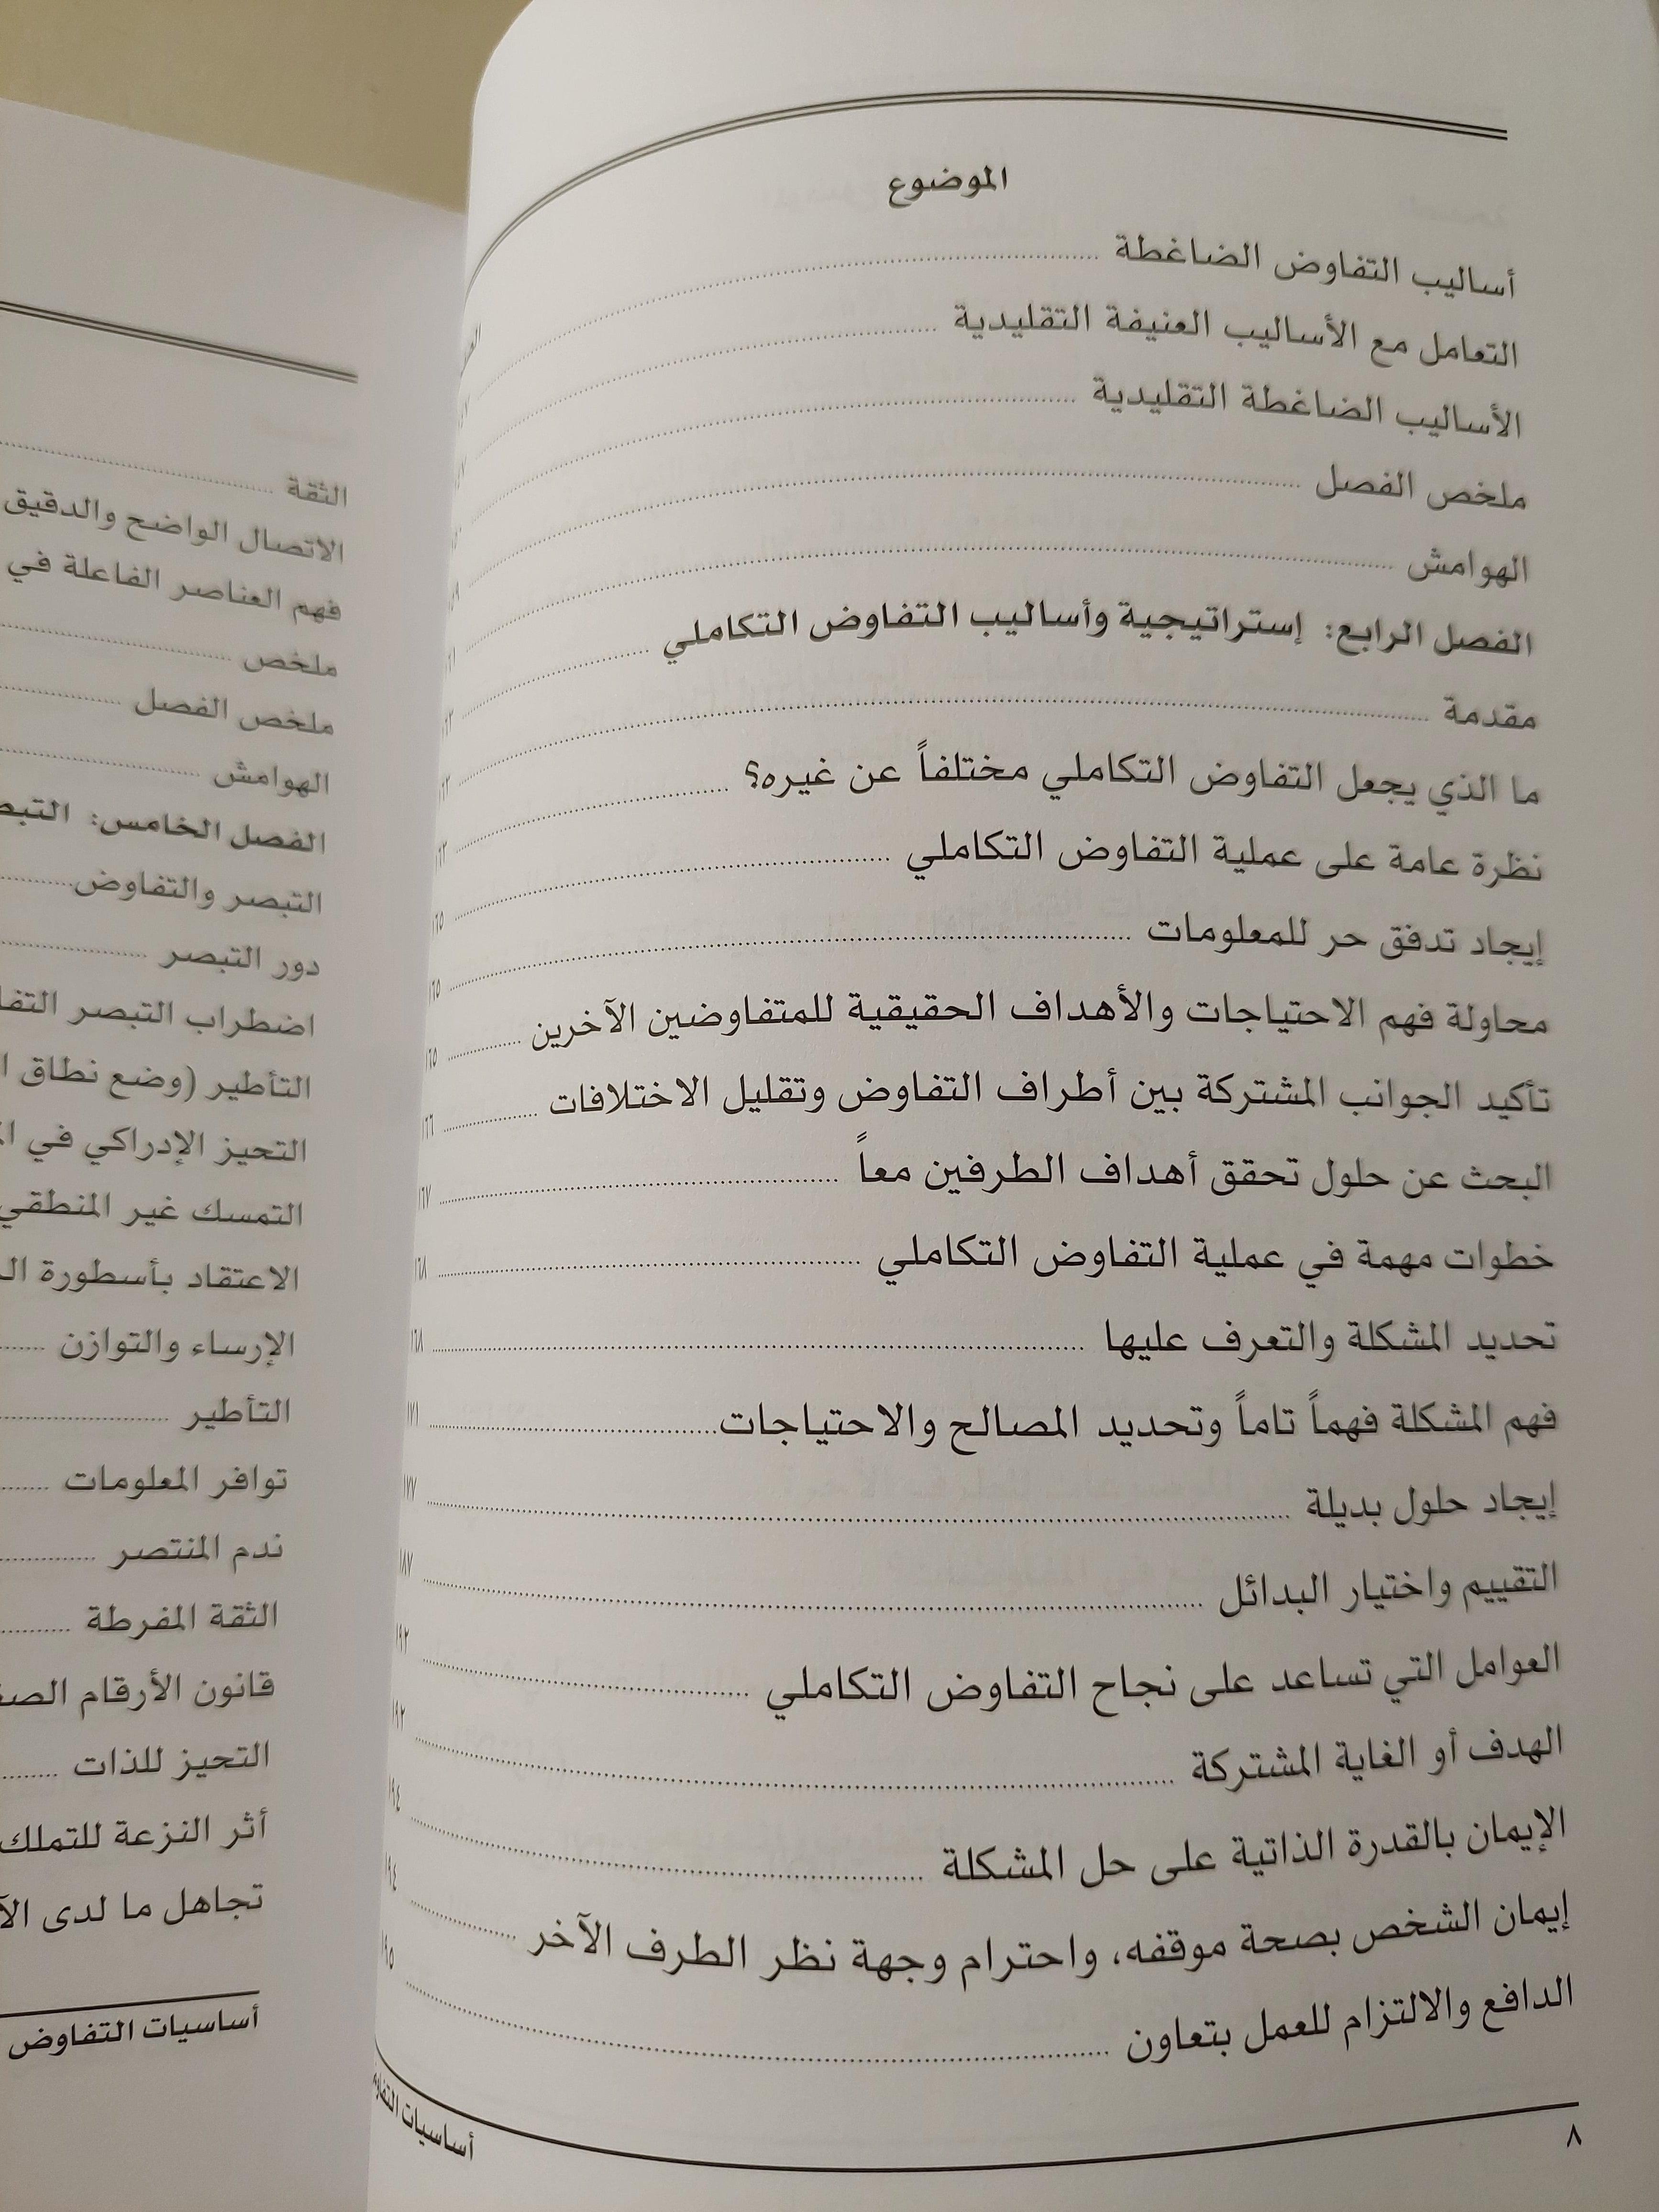 الموضوع
أساليب التفاوض الضاغطة
التعامل مع الأساليب العنيفة التقليدية
الأساليب الضاغطة التقليدية
ملخص الفصل
الهوامش
الفصل الرابع: إستراتيجية وأساليب التفاوض التكاملي
مقدمة
ما الذي يجعل التفاوض التكاملي مختلفاً عن غيره؟
نظرة عامة على عملية التفاوض التكاملي ١٦٥
إيجاد تدفق حر للمعلومات ١٦٥
محاولة فهم الاحتياجات والأهداف الحقيقية للمتفاوضين الآخرين ١٦٥
تأكيد الجوانب المشتركة بين أطراف التفاوض وتقليل الاختلافات ١٦٦
البحث عن حلول تحقق أهداف الطرفين معاً ١٦٧
خطوات مهمة في عملية التفاوض التكاملي ١٦٨
تحديد المشكلة والتعرف عليها ١٦٨
فهم المشكلة فهماً تاماً وتحديد المصالح والاحتياجات ١٧١
إيجاد حلول بديلة ١٧٧
التقييم واختيار البدائل ١٨٧
العوامل التي تساعد على نجاح التفاوض التكاملي
الهدف أو الغاية المشتركة
الإيمان بالقدرة الذاتية على حل المشكلة ١٩٤
إيمان الشخص بصحة موقفه، واحترام وجهة نظر الطرف الآخر ١٩٤
الدافع والالتزام للعمل بتعاون ١٩٥
٨
أساسيات
الثقة
الاتصال الواضح والدقيق
فهم العناصر الفاعلة في
ملخص
ملخص الفصل
الهوامش
الفصل الخامس:
التبصر والتفاوض
دور التبصر
اضطراب التبصر
التأطير (وضع نطاق
التحيز الإدراكي في
التمسك غير المنطقي
الاعتقاد بأسطورة
الإرساء والتوازن
التأطير
توافر المعلومات
ندم المنتصر
الثقة المفرطة
قانون الأرقام
التحيز للذات
أثر النزعة للتملك
تجاهل ما لدى
أساسيات التفاوض